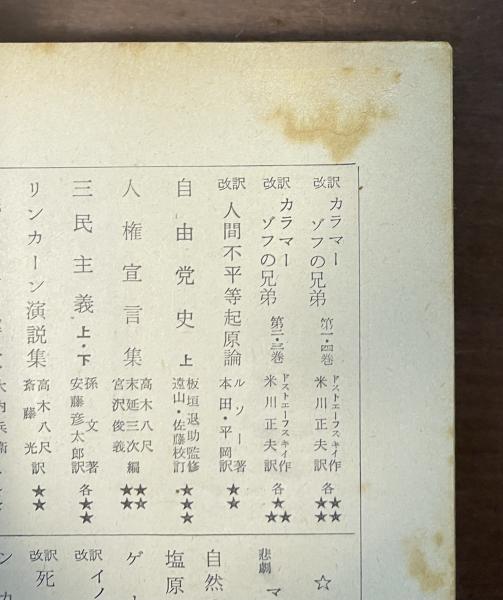 改訳 カラマーゾフの兄弟 第一・四巻 ドストエーフスキイ作 米川正夫訳 各★★★★
改訳 カラマーゾフの兄弟 第二・三巻 ドストエーフスキイ作 米川正夫訳 各★★★
改訳 人間不平等起原論 ルソー著 本田・平岡訳 ★★
自由党史 上 板垣退助監修 遠山・佐藤校訂 ★★★
人権宣言集 高木八尺 末延三次 宮沢俊義 編 ★★★★
三民主義 上・下 孫文著 安藤彦太郎訳 各★★
リンカーン演説集 高木八尺 斎藤光 訳 ★★
☆
悲劇 マ
自然
塩原
ゲー
改訳 イノ
改訳 死
ンカ